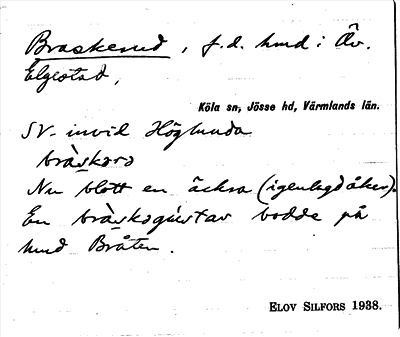 Braskerud, f.d. hmd i Öv.
Elgestad,
Köla sn, Jösse hd, Värmlands län.
SV. invid Höglunda
Nu blott en äckra (igenlagd åker).
En bodde på
hmd Bråten.
ELOV SILFORS 1938.